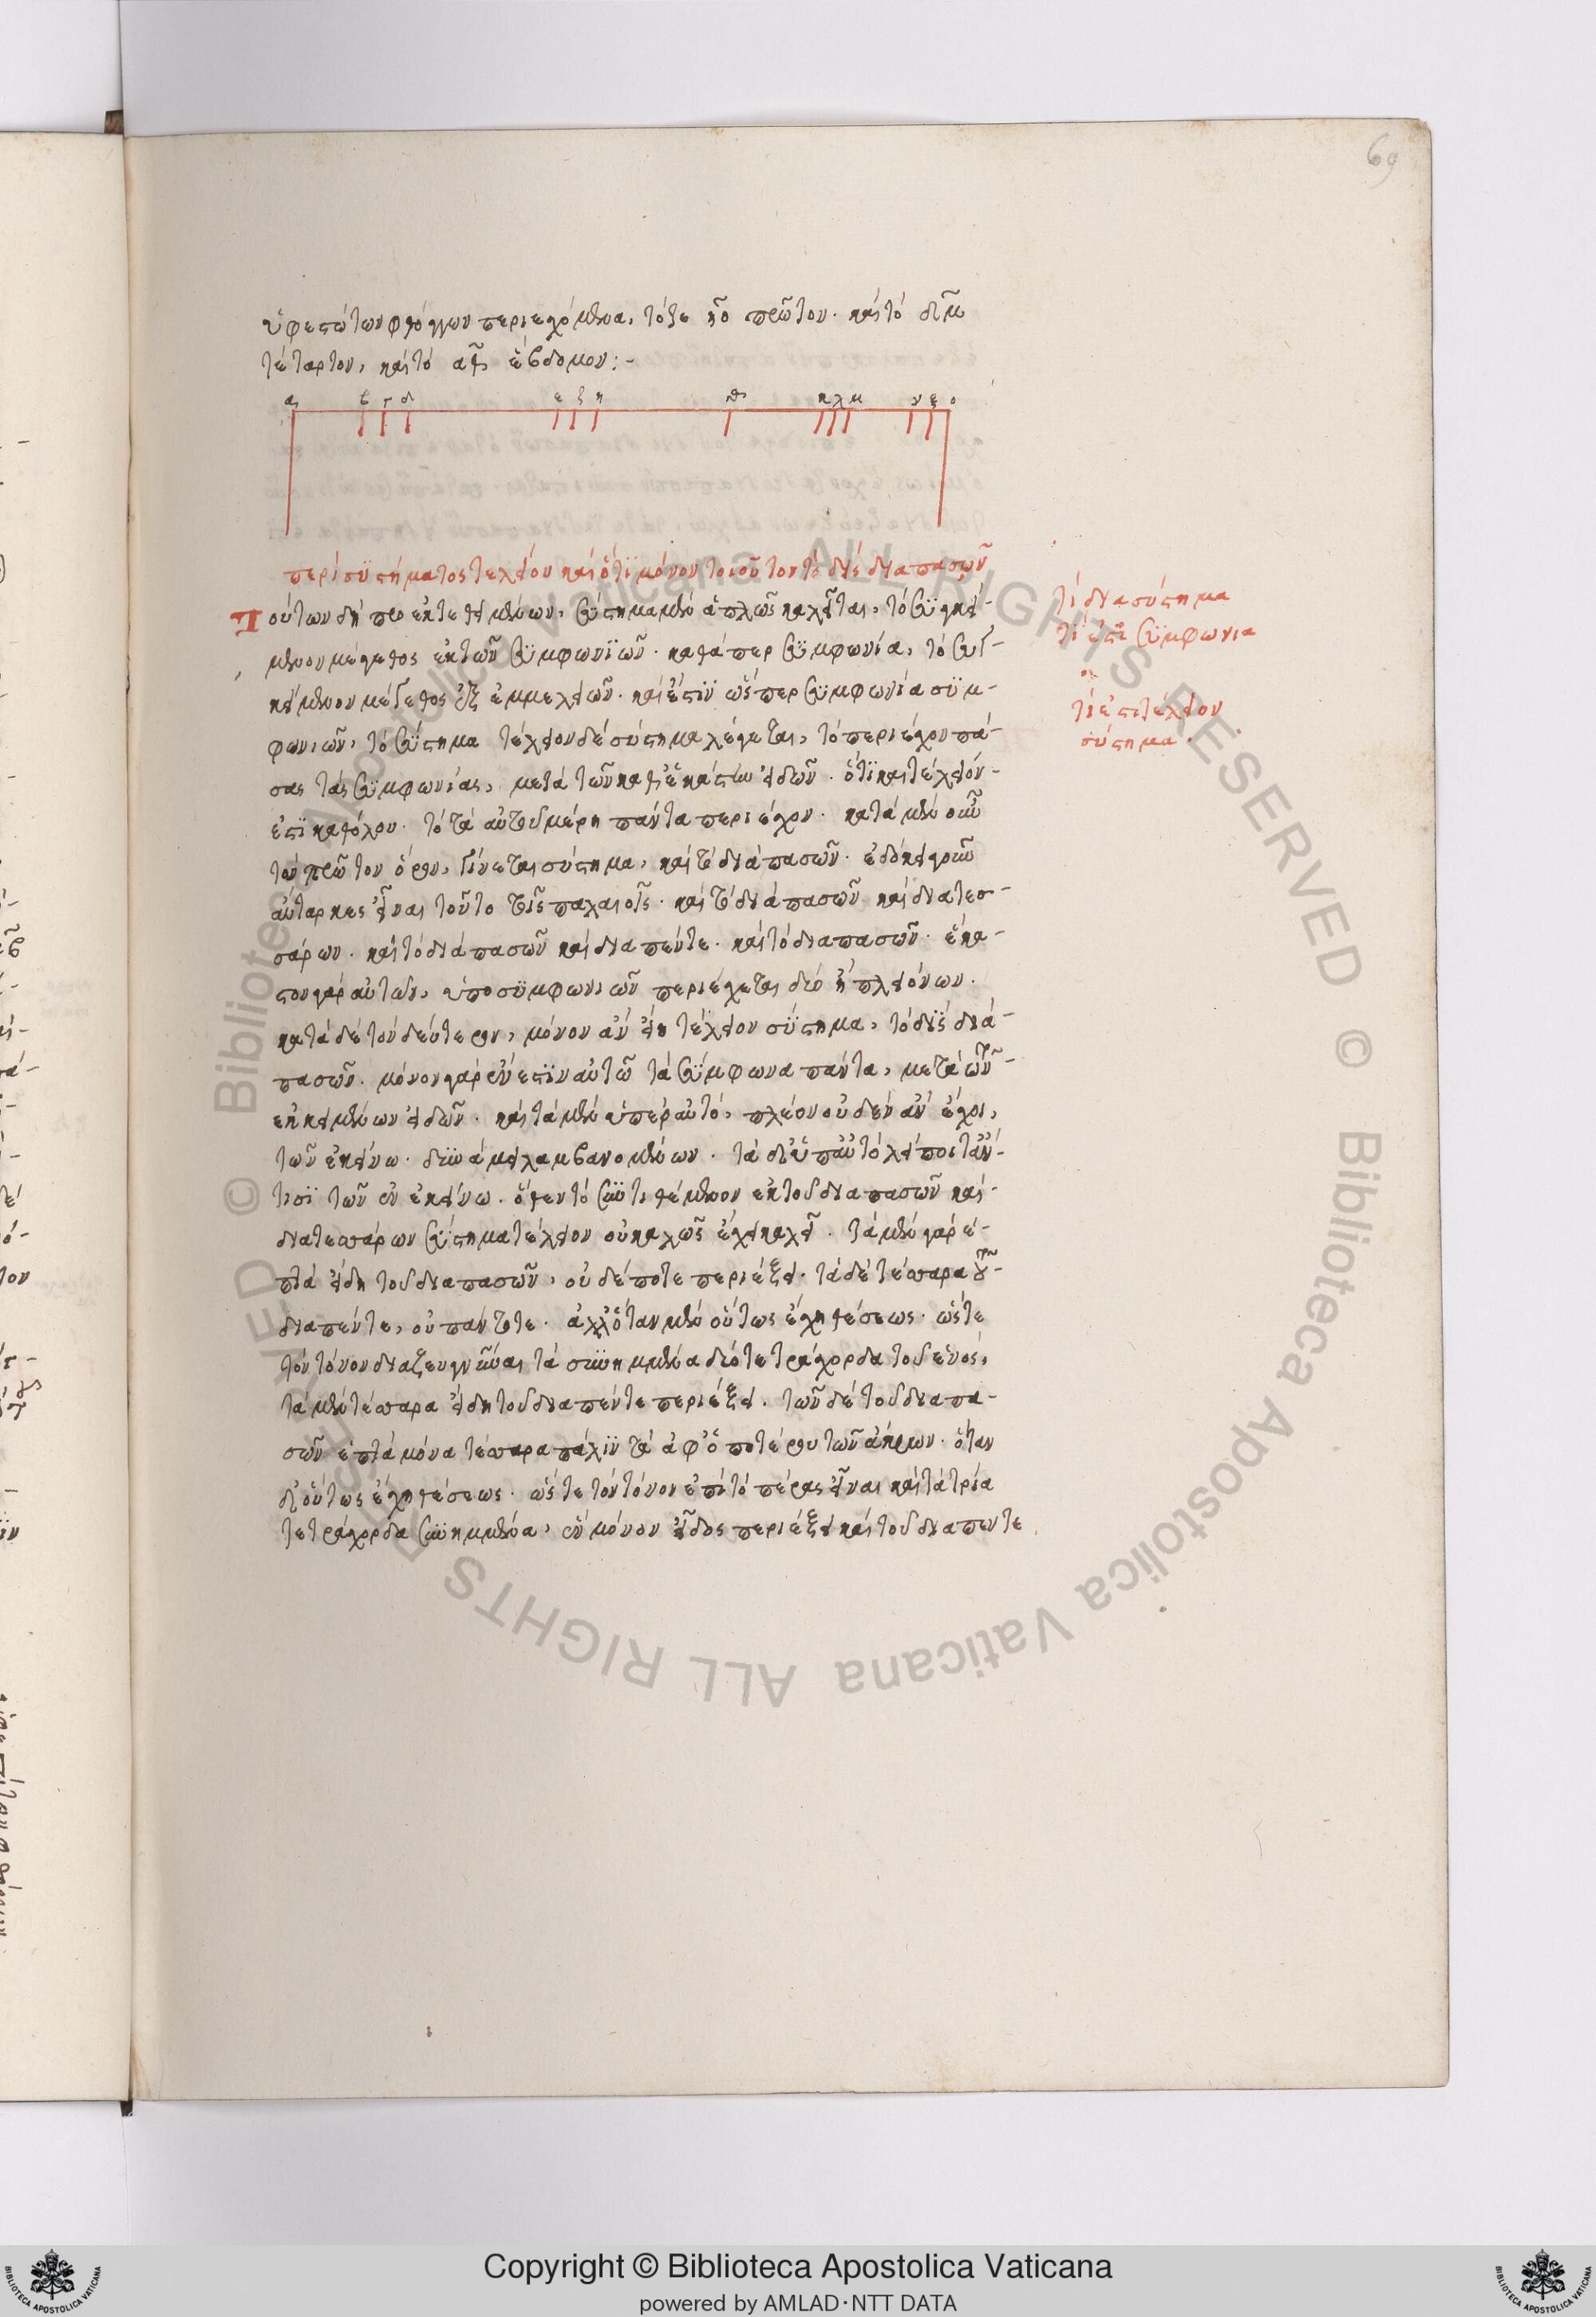 69
ὑφεστώτων φθόγγων περιεχόμενα, τότε ηο πρῶτον. καὶ τὸ δμ
τέταρτον, καὶ τὸ αθ ἕβδομον:-
α β γ δ ε ζ η θ κ λ μ ν ξ ο
περὶ συστήματος τελείου καὶ ὅτι μόνον τοιοῦτον τὸ δὶς διαπασῶν
Τούτων δὴ προεκτεθειμένων, σύστημα μὲν ἁπλῶς καλεῖται, τὸ συγκεί-
μενον μέγεθος ἐκ τῶν συμφωνιῶν. καθάπερ συμφωνία, τὸ συγ-
κείμενον μέγεθος ἐξ ἐμμελειῶν. καὶ ἔστιν ὥσπερ συμφωνία συμ-
φωνιῶν, τὸ σύστημα τέλειον δὲ σύστημα λέγεται, τὸ περιέχον πά-
σας τὰς συμφωνίας, μετὰ τῶν καθ' ἑκάστην εἰδῶν. ὅτι καὶ τέλειόν-
ἐστι καθόλου. τὸ τὰ αὐτοῦ μέρη πάντα περιέχον. κατὰ μὲν οὖν
τὸν πρῶτον ὅρον, γίνεται σύστημα, καὶ τὸ διὰ πασῶν. ἐδόκει γοῦν
αὔταρκες εἶναι τοῦτο τοῖς παλαιοῖς. καὶ τὸ διὰ πασῶν καὶ διατεσ-
σάρων. καὶ τὸ διὰ πασῶν καὶ διαπέντε. καὶ τὸ διαπασῶν. ἕκα-
στον γὰρ αὐτῶν, ὑπὸ συμφωνιῶν περιέχεται δύο ἢ πλειόνων.
κατὰ δὲ τὸν δεύτερον, μόνον ἂν εἴη τέλειον σύστημα, τὸ δὶς διὰ-
πασῶν. μόνον γὰρ ἔνεστιν αὐτῶ τὰ σύμφωνα πάντα, μετὰ τῶν-
ἐκκειμένων εἰδῶν. καὶ τὰ μὲν ὑπὲρ αὐτό, πλέον οὐδὲν ἂν ἔχοι,
τῶν ἐκείνω. δυνάμει λαμβανομένων. τὰ δ' ὑπ' αὐτὸ λείποιτ' ἄν-
τισι τῶν ἐν ἐκείνω. ὅθεν τὸ συντιθέμενον ἐκ τοῦ διαπασῶν καὶ-
διατεσσάρων σύστημα τέλειον οὐ καλῶς ἔχει καλεῖν. τὰ μὲν γὰρ ἑ-
πτὰ εἴδη τοῦ διαπασῶν, οὐδέποτε περιέξει. τὰ δὲ τέσσαρα τοῦ-
διαπέντε, οὐ πάντοτε. ἀλλ' ὅταν μὲν οὕτως ἔχη θέσεως. ὥστε
τὸν τόνον διαζευγνύναι τὰ συνημμένα δύο τετράχορδα τοῦ ἑνός,
τὰ μὲν τέσσαρα εἴδη τοῦ διαπέντε περιέξει. τῶν δὲ τοῦ διαπα-
σῶν ἑπτὰ μόνα τέσσαρα πάλιν τὰ ἀφ' ὁποτέρου τῶν ἄκρων. ὅταν
δ' οὕτως ἔχη θέσεως. ὥστε τὸν τόνον ἐπὶ τὸ πέρας εἶναι καὶ τὰ τρία
τετράχορδα συνημμένα, ἓν μόνον εἶδος περιέξει καὶ τοῦ διαπεντε
τί διασύστημα
τί ἐστι συμφωνια
τί ἐστι τέλειον
σύστημα.
Copyright © Biblioteca Apostolica Vaticana
powered by AMLAD·NTT DATA